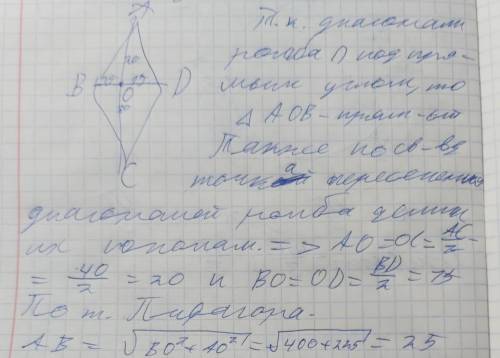 A
Т.к. диагонали
ромба ∩ под пря-
мым углом, то
△ AOB - прям-от
Также по св-ву
точка пересечения
диагоналей ромба делит
их пополам. => AO=OC=AC/2=
= 40/2 = 20 и BO=OD=BD/2=15
По т. Пифагора.
AB = √BO²+AO² = √400+225 = 25
B
20
O
15
D
C